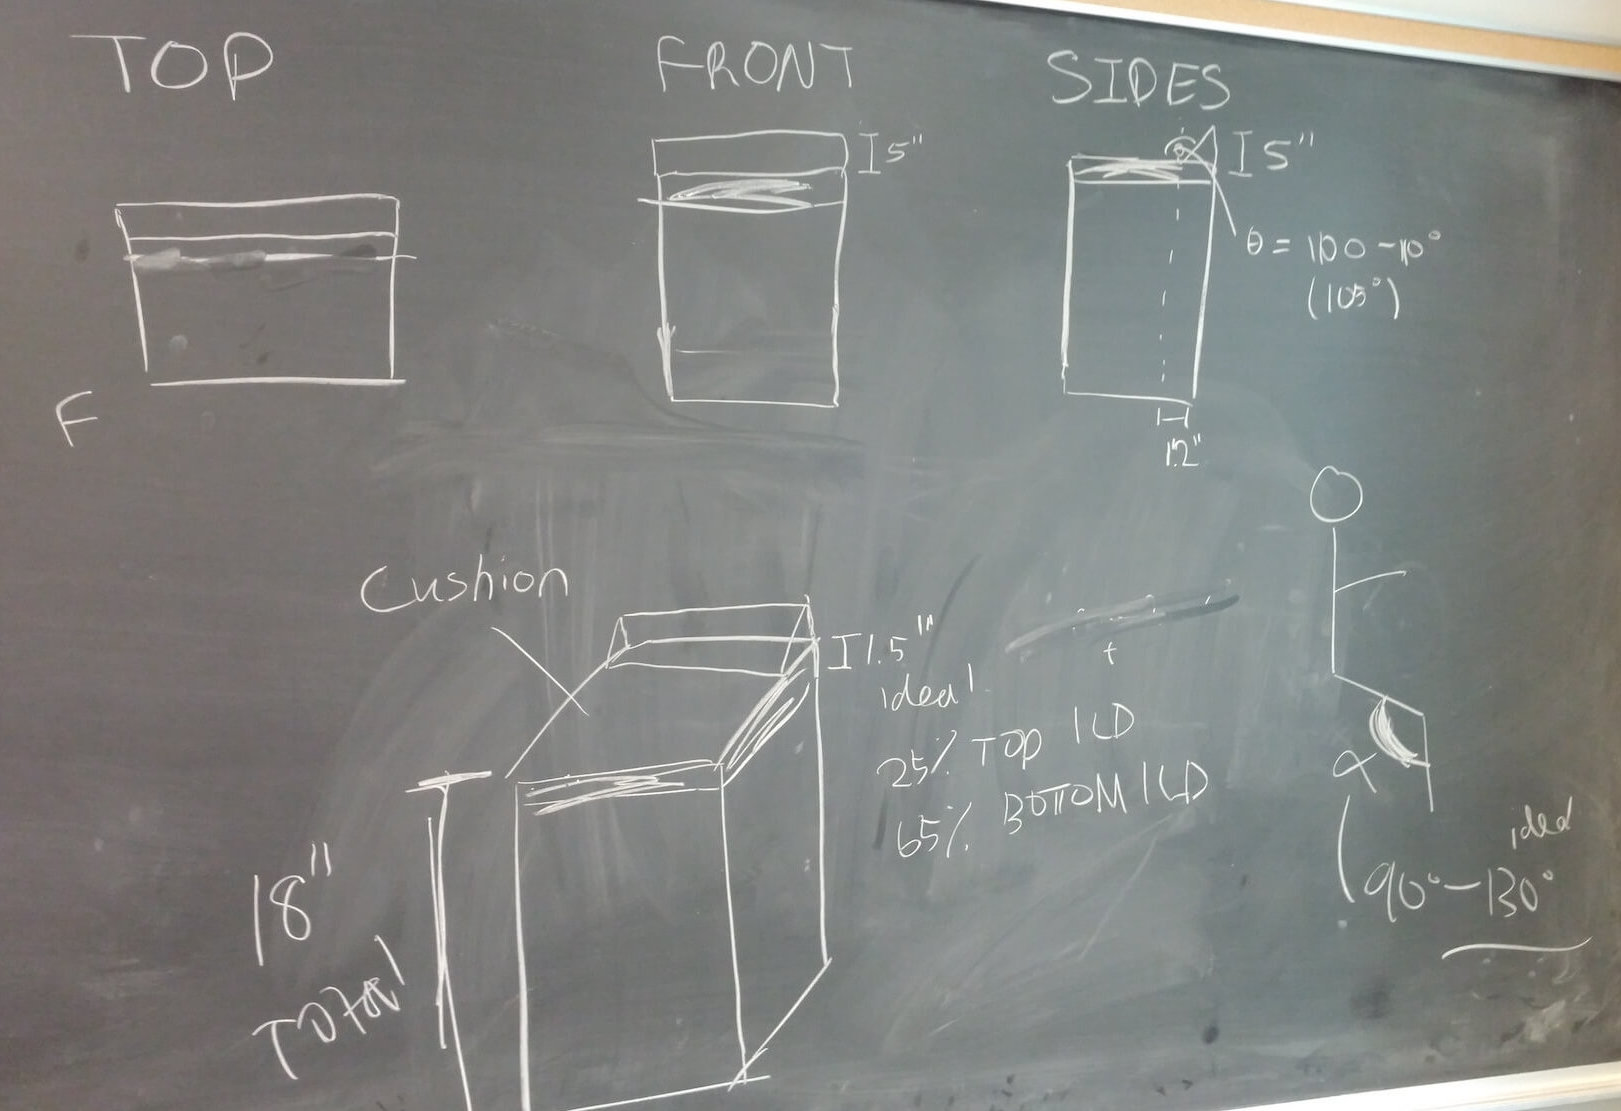 TOP
FRONT
SIDES
5"
5"
θ = 100-110°
(105°)
F
Cushion
1.5"
ideal
+
25% TOP ILD
65% BOTTOM ILD
18"
TOTal
α
ideal
90°-130°